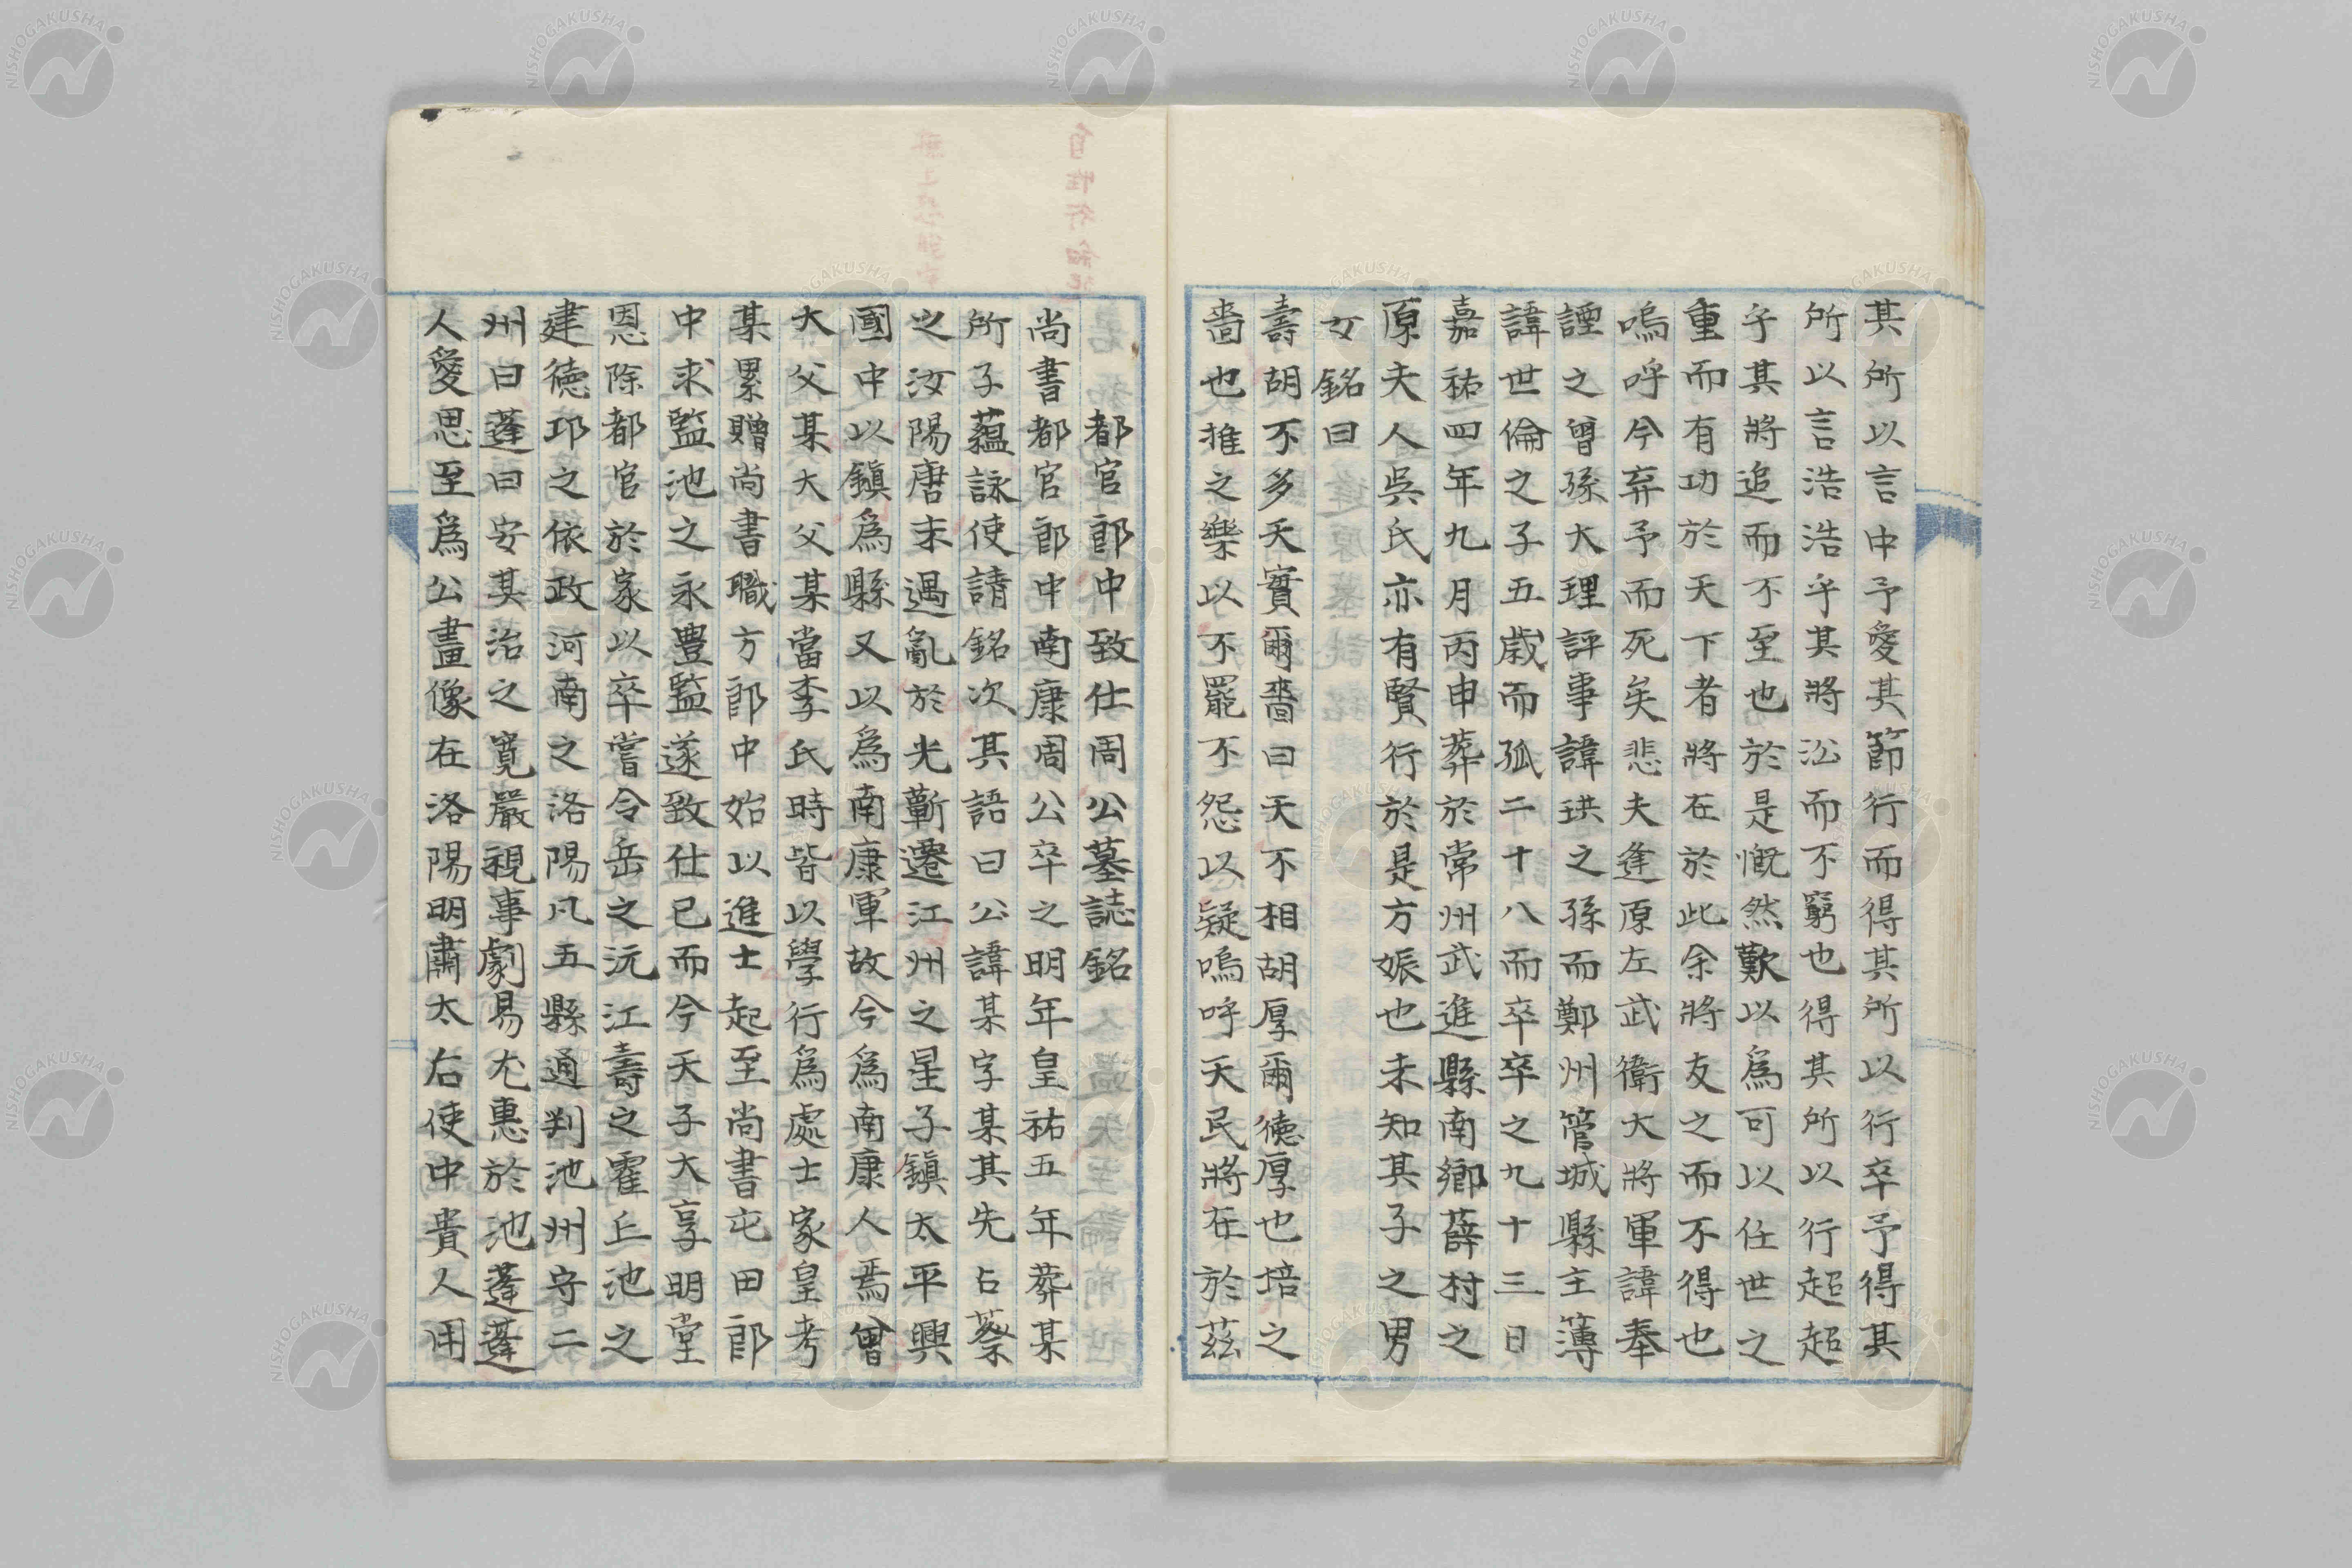 其所以言中予愛其節行而得其所以行卒予得其
所以言浩浩乎其將沿而不窮也得其所以行超超
乎其將追而不至也於是慨然歎以為可以任世之
重而有功於天下者將在於此余將友之而不得也
嗚呼今弃予而死矣悲夫逢原左武衛大將軍諱奉
諲之曾孫大理評事諱珙之孫而鄭州管城縣主薄
諱世倫之子五歳而孤二十八而卒卒之九十三日
嘉祐四年九月丙申葬於常州武進縣南鄉薛村之
原夫人吳氏亦有賢行於是方娠也未知其子之男
女銘曰
壽胡不多天實爾嗇曰天不相胡厚爾徳厚也培之
嗇也推之樂以不罷不怨以疑嗚呼天民將在於茲
都官郎中致仕周公墓誌銘
尚書都官郎中南康周公卒之明年皇祐五年葬某
所子蘊詠使請銘次其語曰公諱某字某其先占蔡
之汝陽唐末遇亂於光蘄遷江州之星子鎮太平興
國中以鎮為縣又以為南康軍故今為南康人焉曾
大父某大父某當李氏時皆以學行為處士家皇考
某累贈尚書職方郎中始以進士起至尚書屯田郎
中求監池之永豊監遂致仕已而今天子大享明堂
恩除都官於家以卒嘗令岳之沅江壽之霍丘池之
建徳邛之依政河南之洛陽凡五縣通判池州守二
州曰蓬曰安其治之寛嚴視事劇易尤惠於池蓬蓬
人愛思至為公畫像在洛陽明肅太右使中貴人用
NISHOGAKUSHA